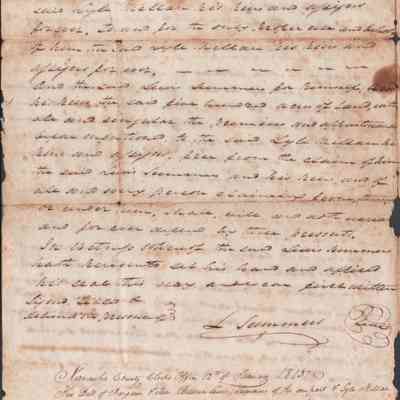 said Lyle Millan his heirs and assigns
forever. To and for the only proper use and behoof
of him, the said Lyle Millan his heirs and
assigns for ever,
And the said Lewis Summers for himself, and
his heirs the said five hundred acres of Land, with
all and singular the Premises and appurtenances
before mentioned to the said Lyle Millan his
heirs and assigns, free from the claim of him
the said Lewis Summers and his heirs, and of
all and every person claiming
or under him, shall, will and doth warrant
and forever defend by these presents.
In Witness whereof the said Lewis Summers
hath hereunto set his hand and affixed
his seal this day and year first written
Signed Sealed &
L Summers Seal
Kanawha County Clerks Office 12th of January 1813
This Deed of Bargain & Sale Lewis Summers to Lyle Millan